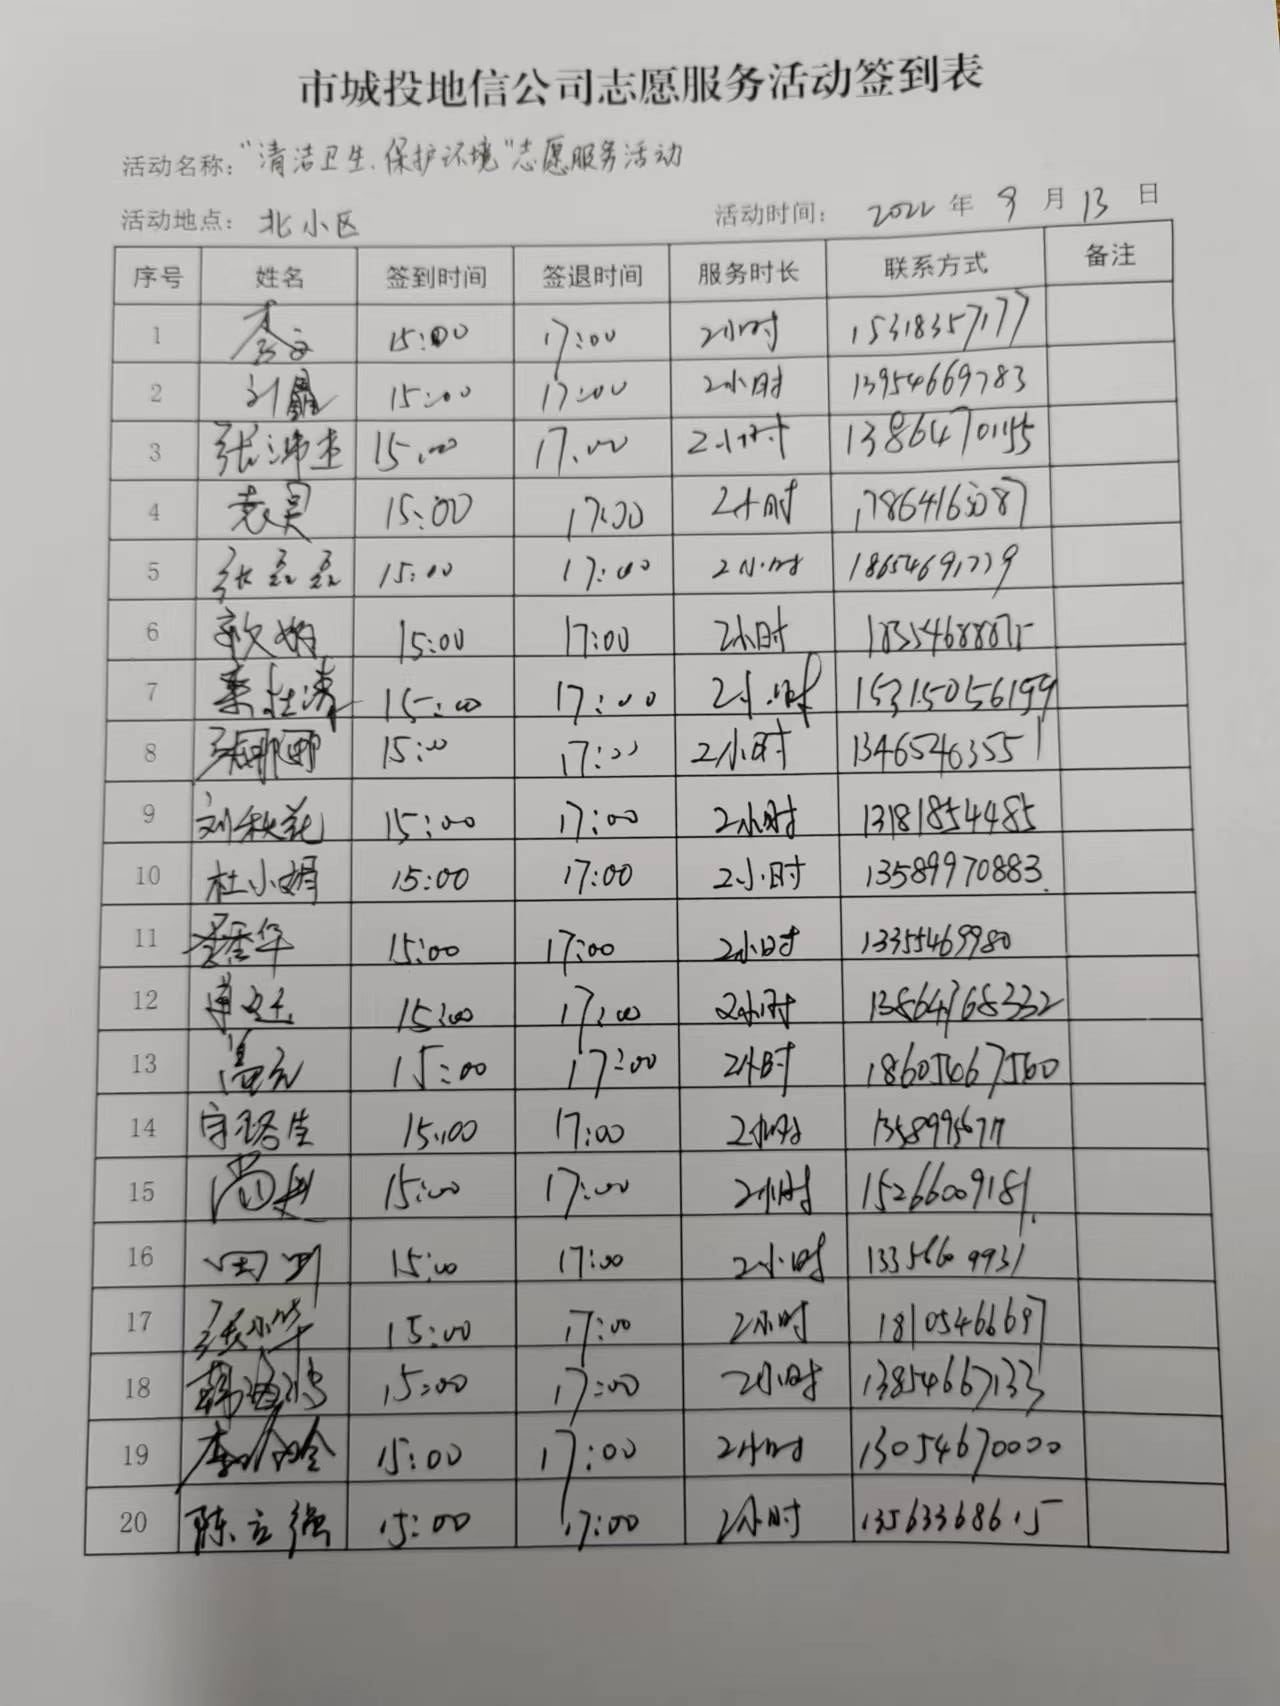 市城投地信公司志愿服务活动签到表
活动名称:"清洁卫生、保护环境"志愿服务活动
活动地点: 北小区 活动时间: 2022 年 9 月 13 日
序号 姓名 签到时间 签退时间 服务时长 联系方式 备注
1 15:00 17:00 2小时 15318357177
2 15:00 17:00 2小时 13954669783
3 15:00 17:00 2小时 13864701155
4 袁昊 15:00 17:00 2小时
5 张磊磊 15:00 17:00 2小时
6 15:00 17:00 2小时
7 15:00 17:00 2小时 15315056199
8 15:00 17:00 2小时 13465463551
9 刘秋花 15:00 17:00 2小时 13181854485
10 杜小娟 15:00 17:00 2小时 13589970883
11 15:00 17:00 2小时 13355469980
12 15:00 17:00 2小时 13864768332
13 15:00 17:00 2小时 18605467560
14 15:00 17:00 2小时
15 15:00 17:00 2小时 15266009181
16 15:00 17:00 2小时 13356609931
17 张小华 15:00 17:00 2小时 18105466697
18 15:00 17:00 2小时 13854667133
19 15:00 17:00 2小时 13054670000
20 陈立强 15:00 17:00 2小时 13563368615